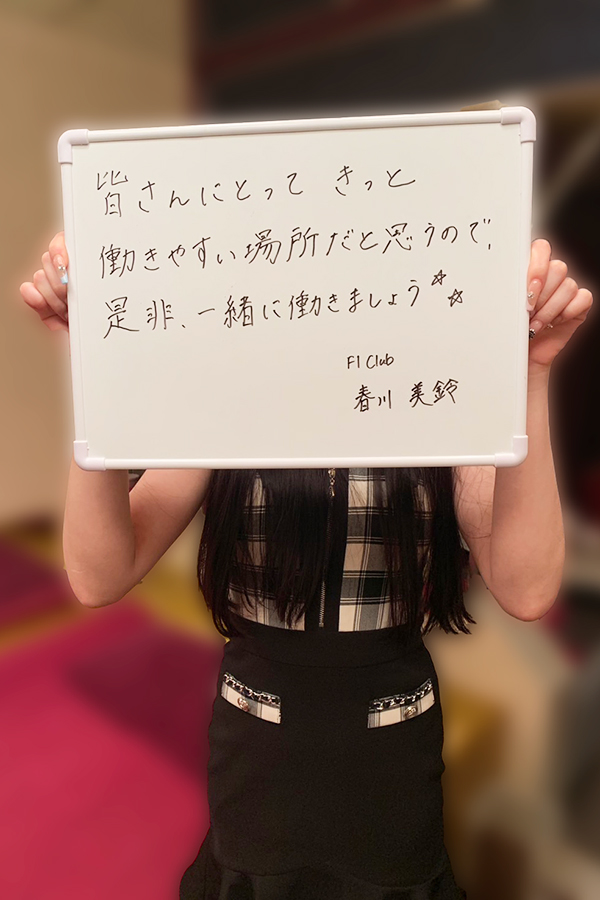 皆さんにとって きっと
働きやすい場所だと思うので、
是非、一緒に働きましょう☆☆
F1 Club
春川 美鈴